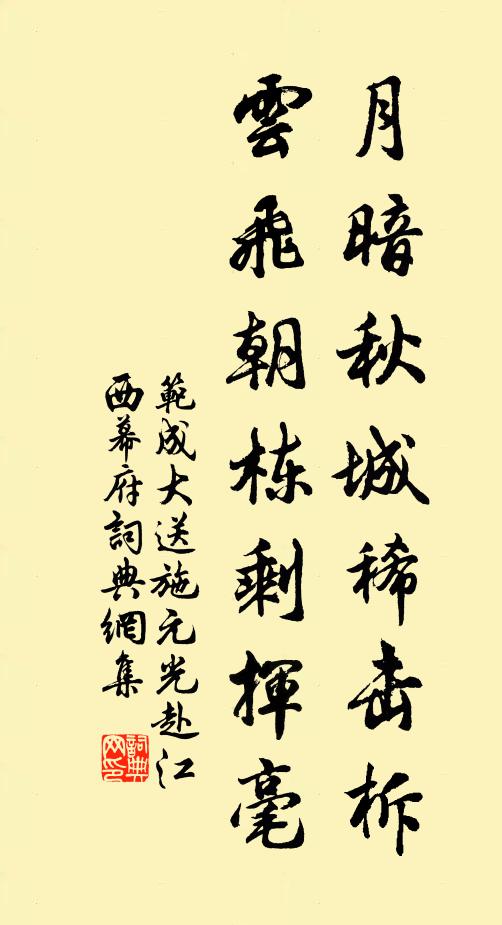 月暗秋城稀击柝
雲飛朝栋剩揮毫
範成大送施元光赴江
西幕府詞典網集
詞典
网印